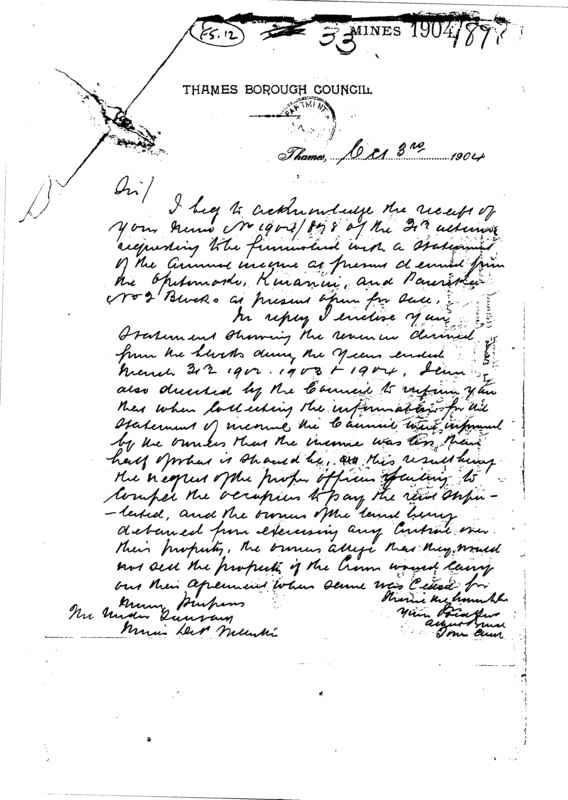 F5.12
33 MINES 1904/897
THAMES BOROUGH COUNCIL
Thames, Oct 3rd 1904
Sir/
I beg to acknowledge the receipt of
your memo No 1904/898 of the ultimo
requesting to be furnished with a statement
of the annual income at present derived from
the and
No 2 Blocks at present open for sale.
In reply I enclose you
Statement showing the revenue derived
from the blocks during the years ended
March 31st 1902. 1903 & 1904, I am
also directed by the Council to inform you
that when collecting the information for the
statement of income the Council were informed
by the owners that the income was less than
half of what it should be, this result being
the neglect of the proper officers failing to
compel the occupiers to pay the rent stipu-
-lated, and the owners of the land being
debarred from exercising any control over
their property, the owners allege that they would
not sell the property if the Crown would carry
out their agreement when same was ceded for
mining purposes
The Under Secretary
Mines Dept
Town Clerk